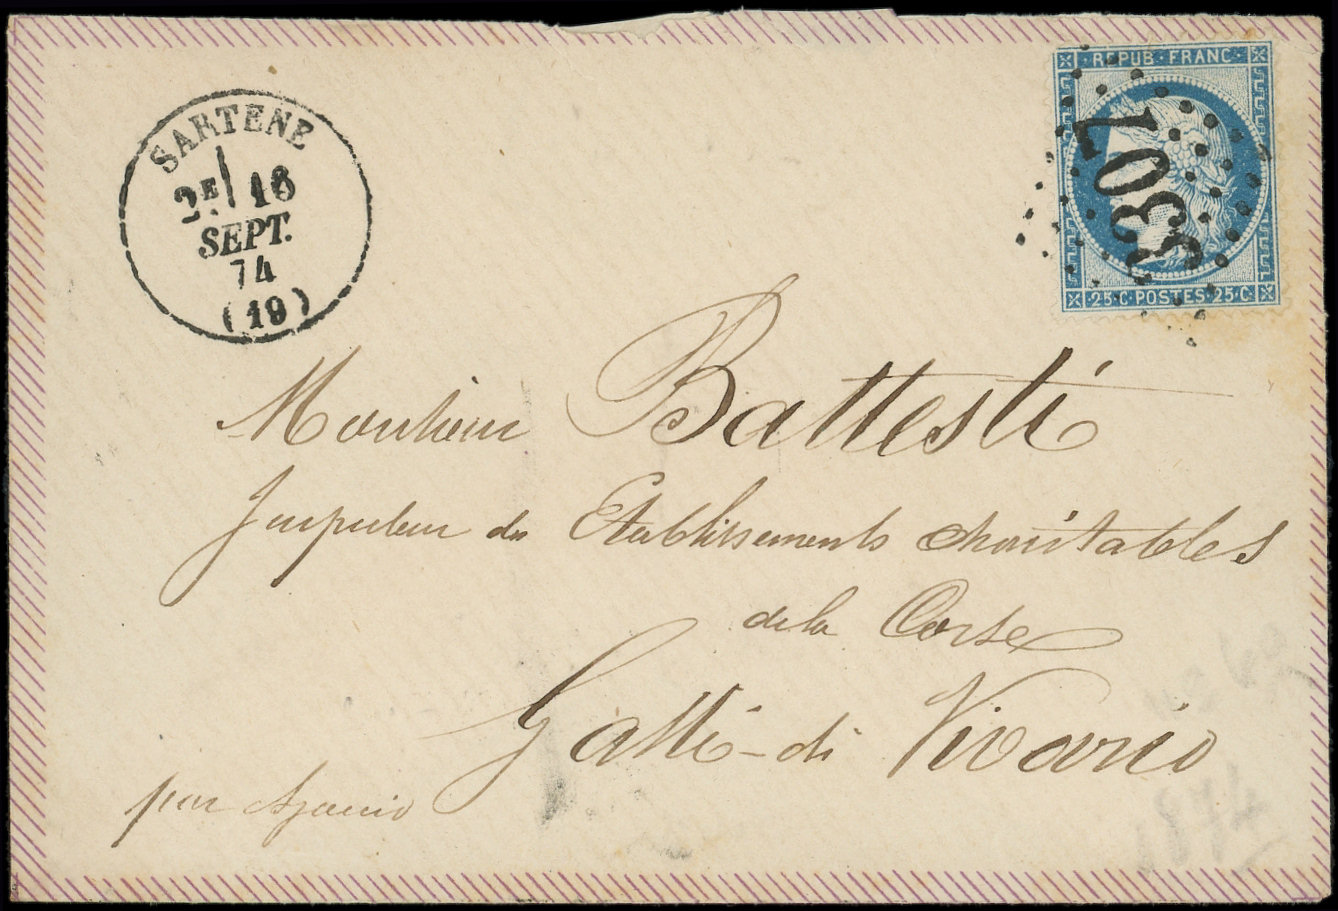 SARTENE
2E 16
SEPT.
74
(19)
REPUB·FRANC
3307
25·C·POSTES·25·C
Monsieur Battesti
Inspecteur des Etablissements charitables
de la Corse
Gatti-di Vivario
par Ajaccio
1874